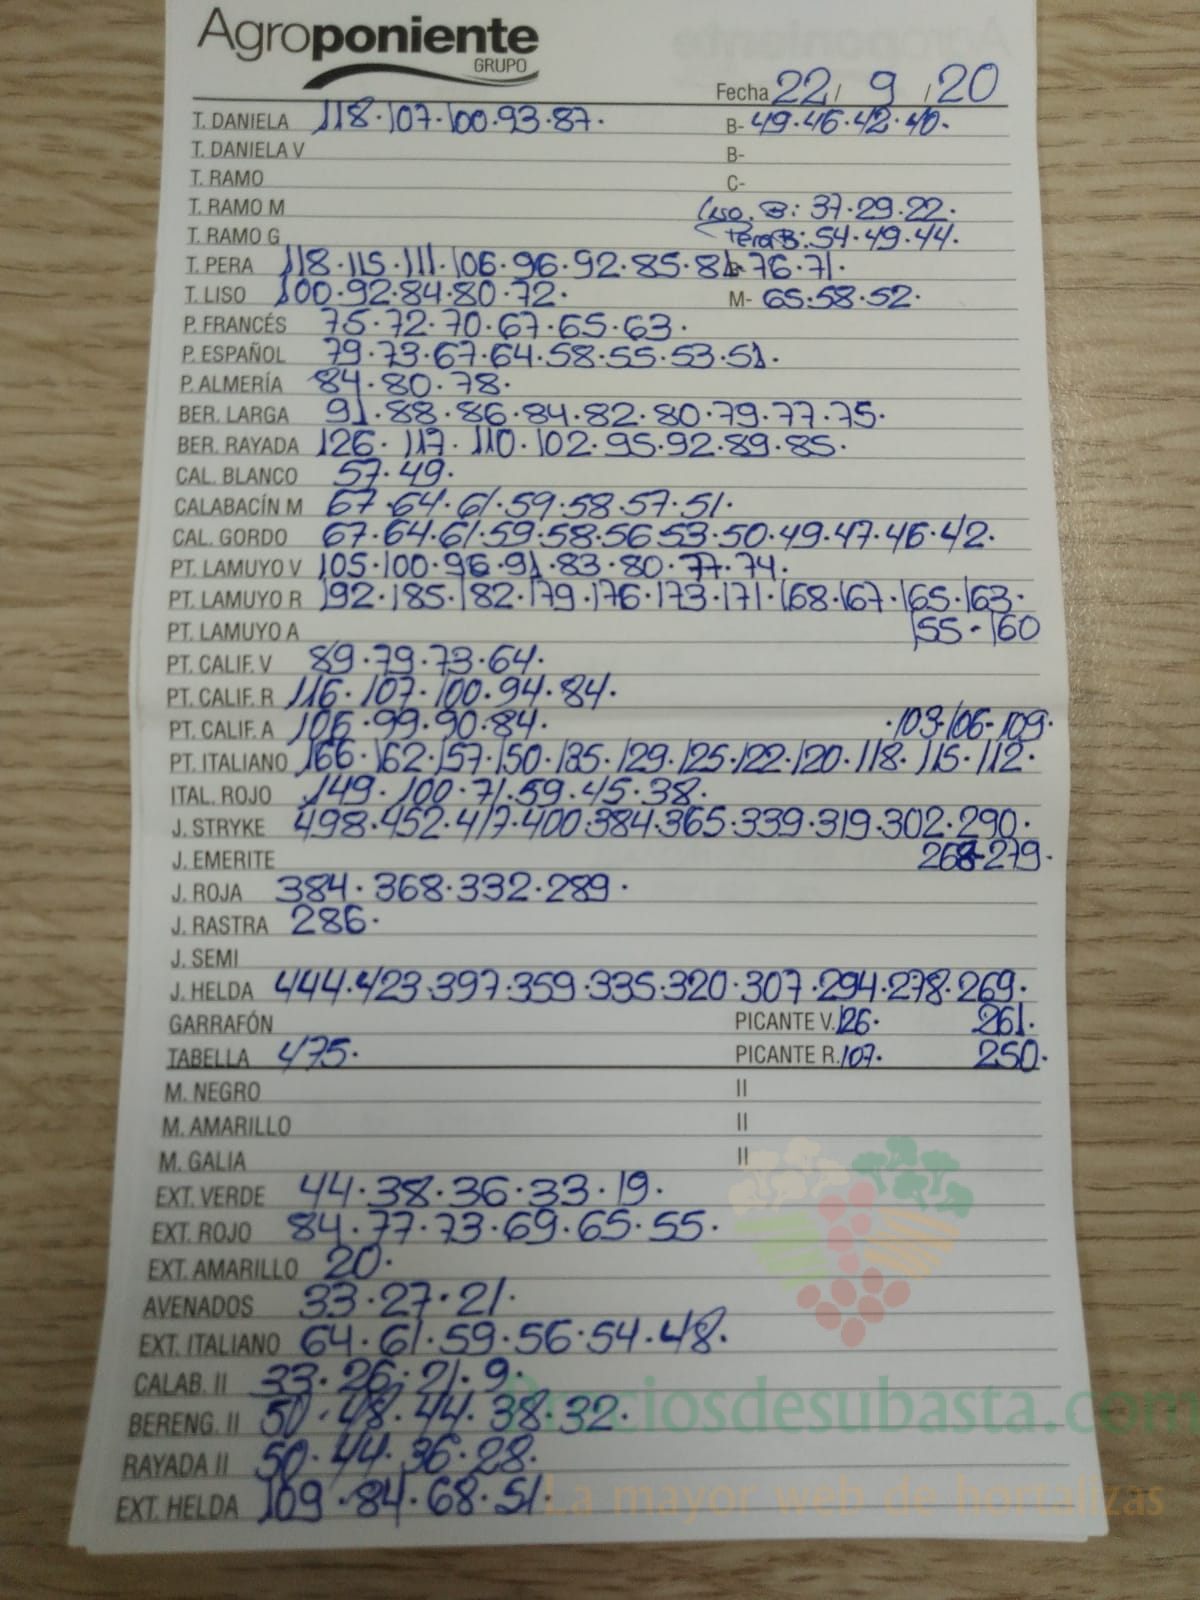 Agroponiente
GRUPO
Fecha 22/ 9 /20
T. DANIELA 118·107·100·93·87· B- 49·46·42·40·
T. DANIELA V B-
T. RAMO C-
T. RAMO M Liso. B: 37·29·22·
T. RAMO G Pera B: 54·49·44·
T. PERA 118·115·111·106·96·92·85·81·76·71·
T. LISO 100·92·84·80·72· M- 65·58·52·
P. FRANCÉS 75·72·70·67·65·63·
P. ESPAÑOL 79·73·67·64·58·55·53·51·
P. ALMERÍA 84·80·78·
BER. LARGA 91·88·86·84·82·80·79·77·75·
BER. RAYADA 126·117·110·102·95·92·89·85·
CAL. BLANCO 57·49·
CALABACÍN M 67·64·61·59·58·57·51·
CAL. GORDO 67·64·61·59·58·56·53·50·49·47·46·42·
PT. LAMUYO V 105·100·96·91·83·80·77·74·
PT. LAMUYO R 192·185·182·179·176·173·171·168·167·165·163·
PT. LAMUYO A 155·160
PT. CALIF. V 89·79·73·64·
PT. CALIF. R 116·107·100·94·84·
PT. CALIF. A 106·99·90·84· ·103·106-109·
PT. ITALIANO 166·162·157·150·135·129·125·122·120·118·115·112·
ITAL. ROJO 149·100·71·59·45·38·
J. STRYKE 498·452·417·400·384·365·339·319·302·290·
J. EMERITE 268-279·
J. ROJA 384·368·332·289·
J. RASTRA 286·
J. SEMI
J. HELDA 444·423·397·359·335·320·307·294·278·269·
GARRAFÓN PICANTE V. 126· 261·
TABELLA 475· PICANTE R. 107· 250·
M. NEGRO II
M. AMARILLO II
M. GALIA II
EXT. VERDE 44·38·36·33·19·
EXT. ROJO 84·77·73·69·65·55·
EXT. AMARILLO 20·
AVENADOS 33·27·21·
EXT. ITALIANO 64·61·59·56·54·48·
CALAB. II 33·26·21·9·
Preciosdesubasta.com
BERENG. II 50·48·44·38·32·
RAYADA II 50·44·36·28·
EXT. HELDA 109·84·68·51·
La mayor web de hortalizas